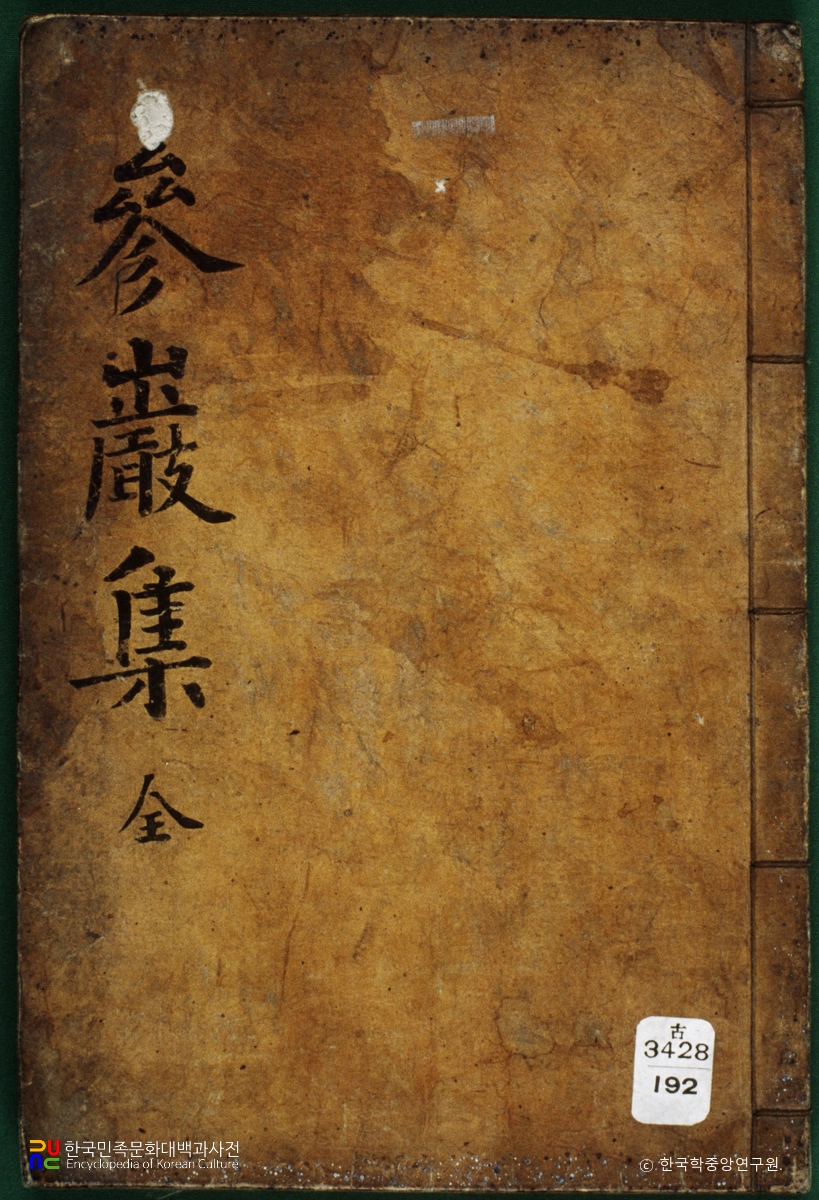 參巖集 全
古
3428
192
한국민족문화대백과사전
Encyclopedia of Korean Culture
© 한국학중앙연구원